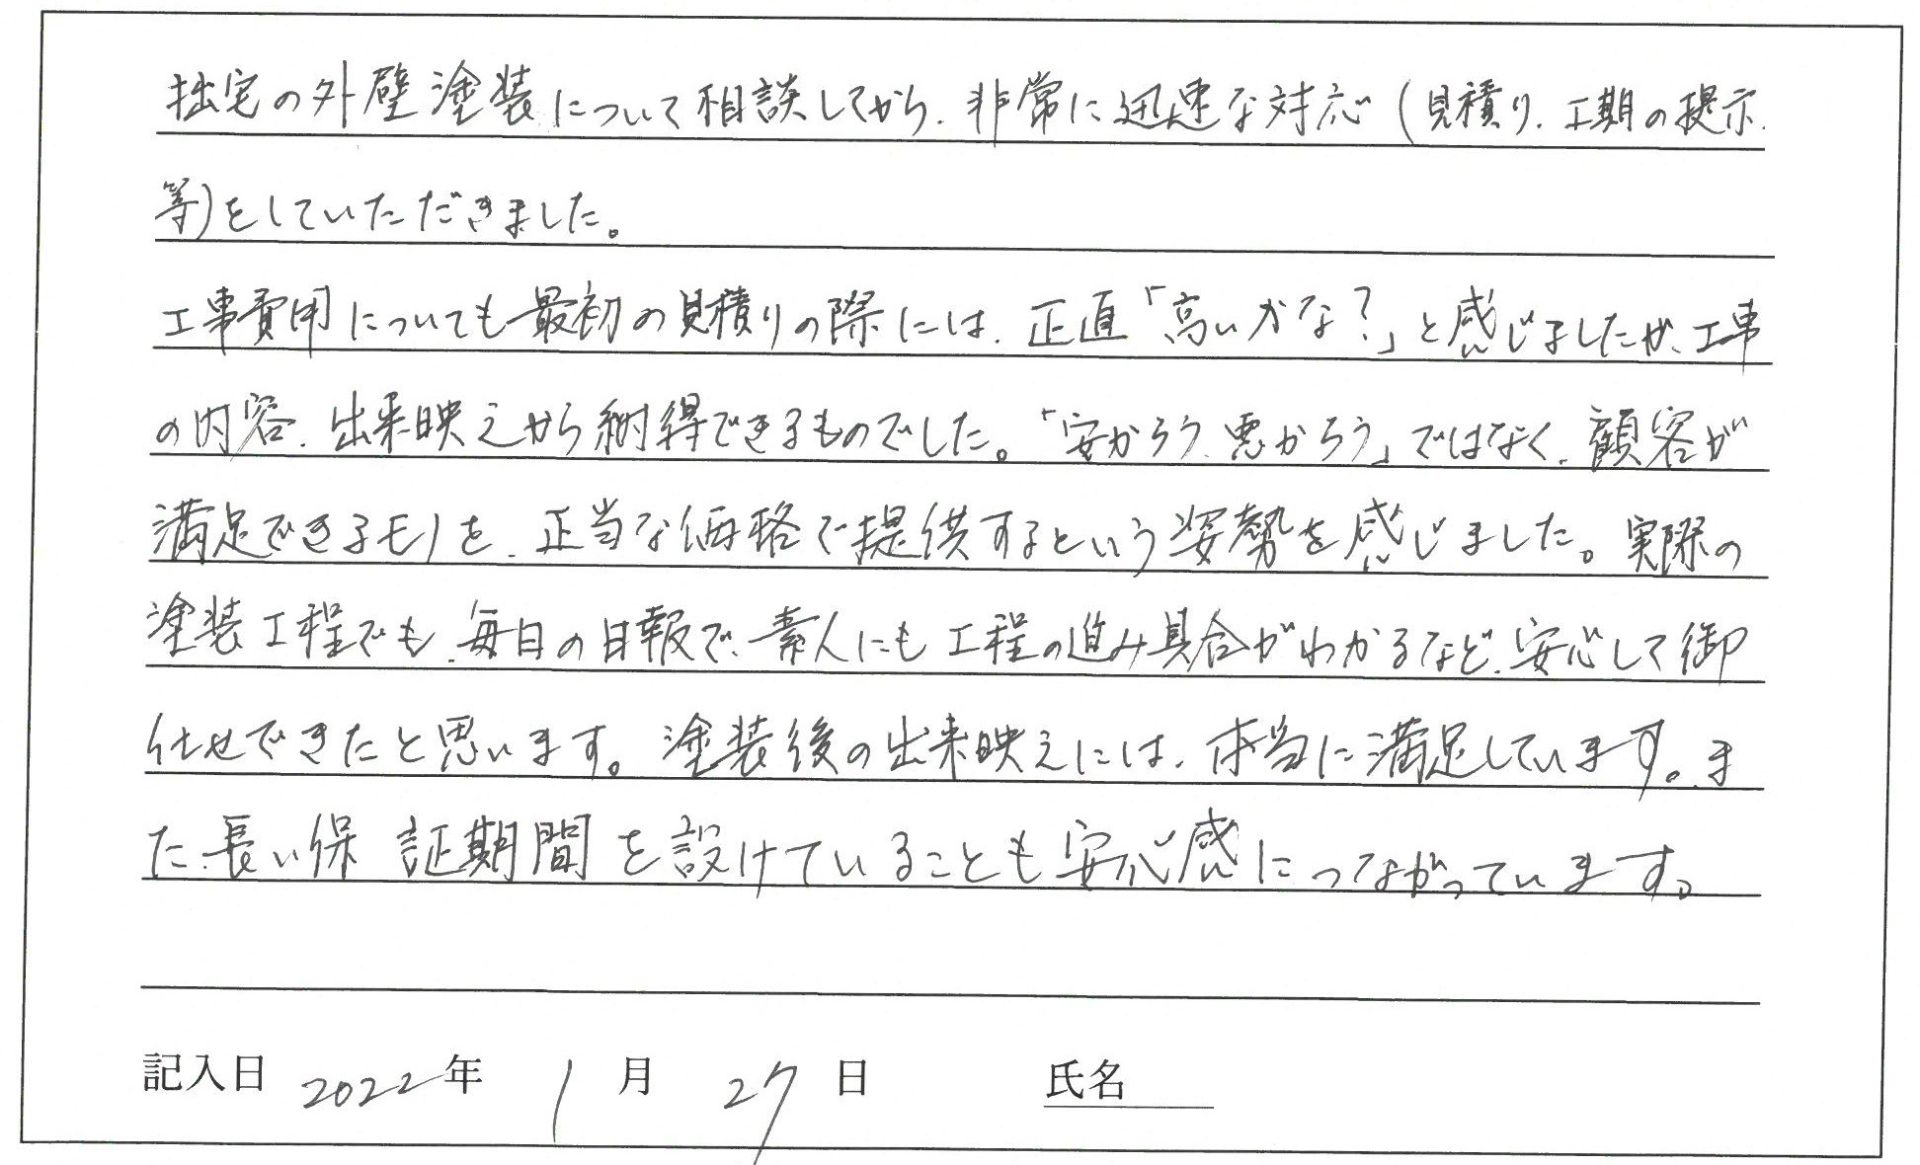 拙宅の外壁塗装について相談してから、非常に迅速な対応(見積り、工期の提示、
等)をしていただきました。
工事費用についても最初の見積りの際には、正直「高いかな?」と感じましたが、工事
の内容、出来映えから納得できるものでした。「安かろう、悪かろう」ではなく、顧客が
満足できるモノを、正当な価格で提供するという姿勢を感じました。実際の
塗装工程でも、毎日の日報で、素人にも工程の進み具合がわかるなど、安心して御
任せできたと思います。塗装後の出来映えには、本当に満足しています。ま
た、長い保証期間を設けていることも安心感につながっています。
記入日 2022年 1月 27日 氏名